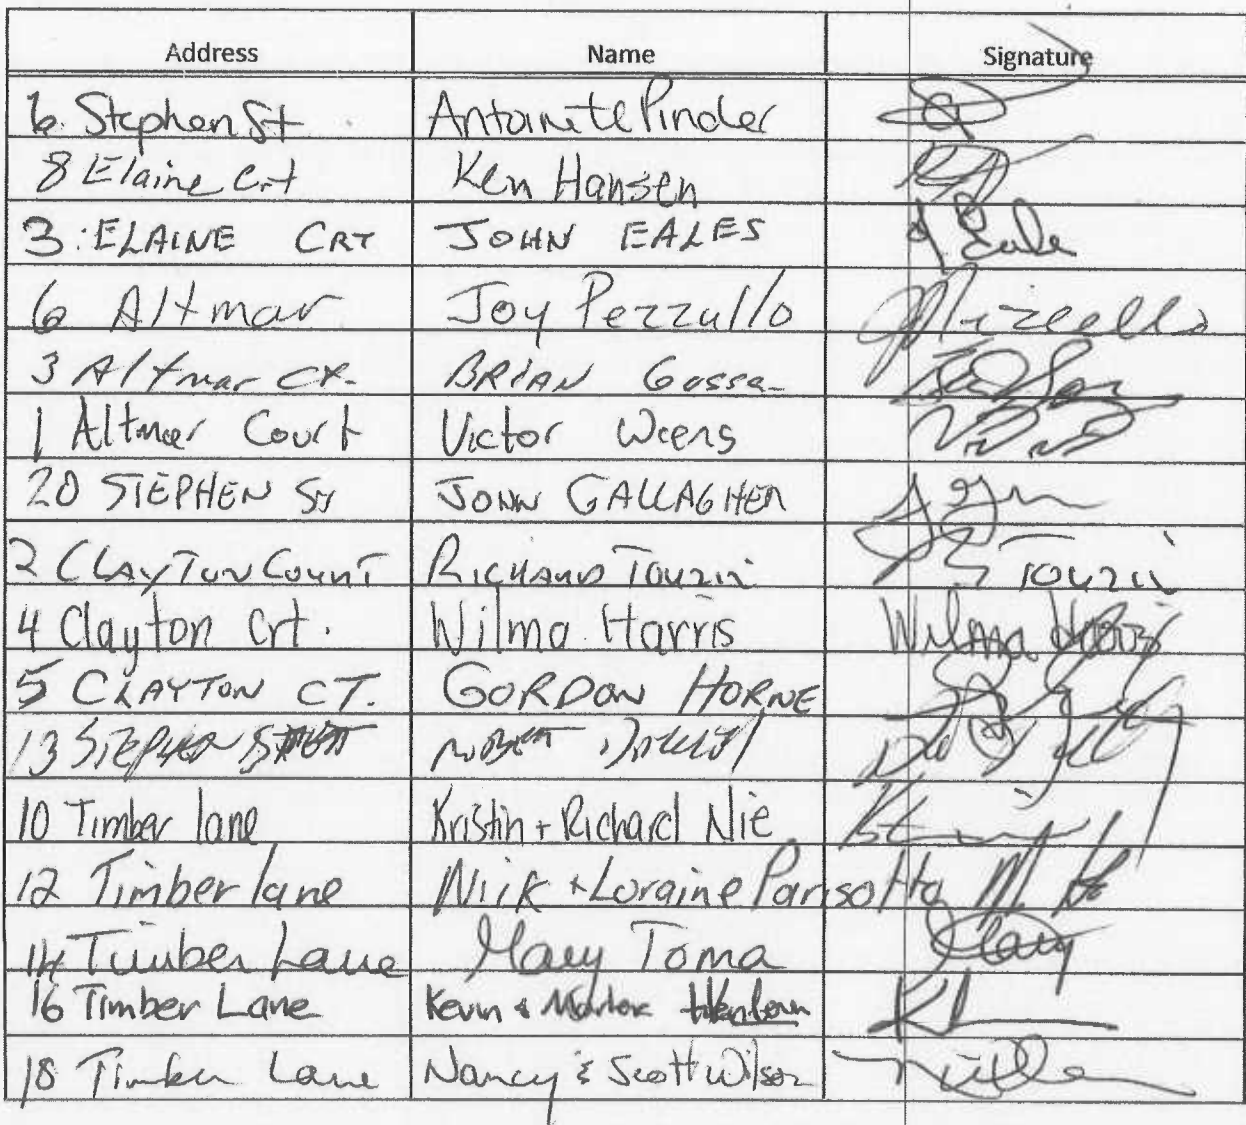 Address Name Signature
6 Stephen St Antoinette Pinder
8 Elaine Crt Ken Hansen
3 ELAINE CRT JOHN EALES J Eale
6 Altmar Joy Pezzullo
3 Altmar CT. BRIAN
1 Altmar Court Victor Wiens
20 STEPHEN ST JOHN GALLAGHER
2 CLAYTON COURT RICHARD TOUZII TOUZII
4 Clayton Crt. Wilma Harris Wilma Harris
5 CLAYTON CT. GORDON HORNE
13 STEPHEN STREET ROBERT
10 Timber lane Kristin + Richard Nie
12 Timber lane Nick + Loraine Parisotto
14 Timber Lane Mary Toma Mary
16 Timber Lane Kevin &
18 Timber Lane Nancy & Scott Wilson